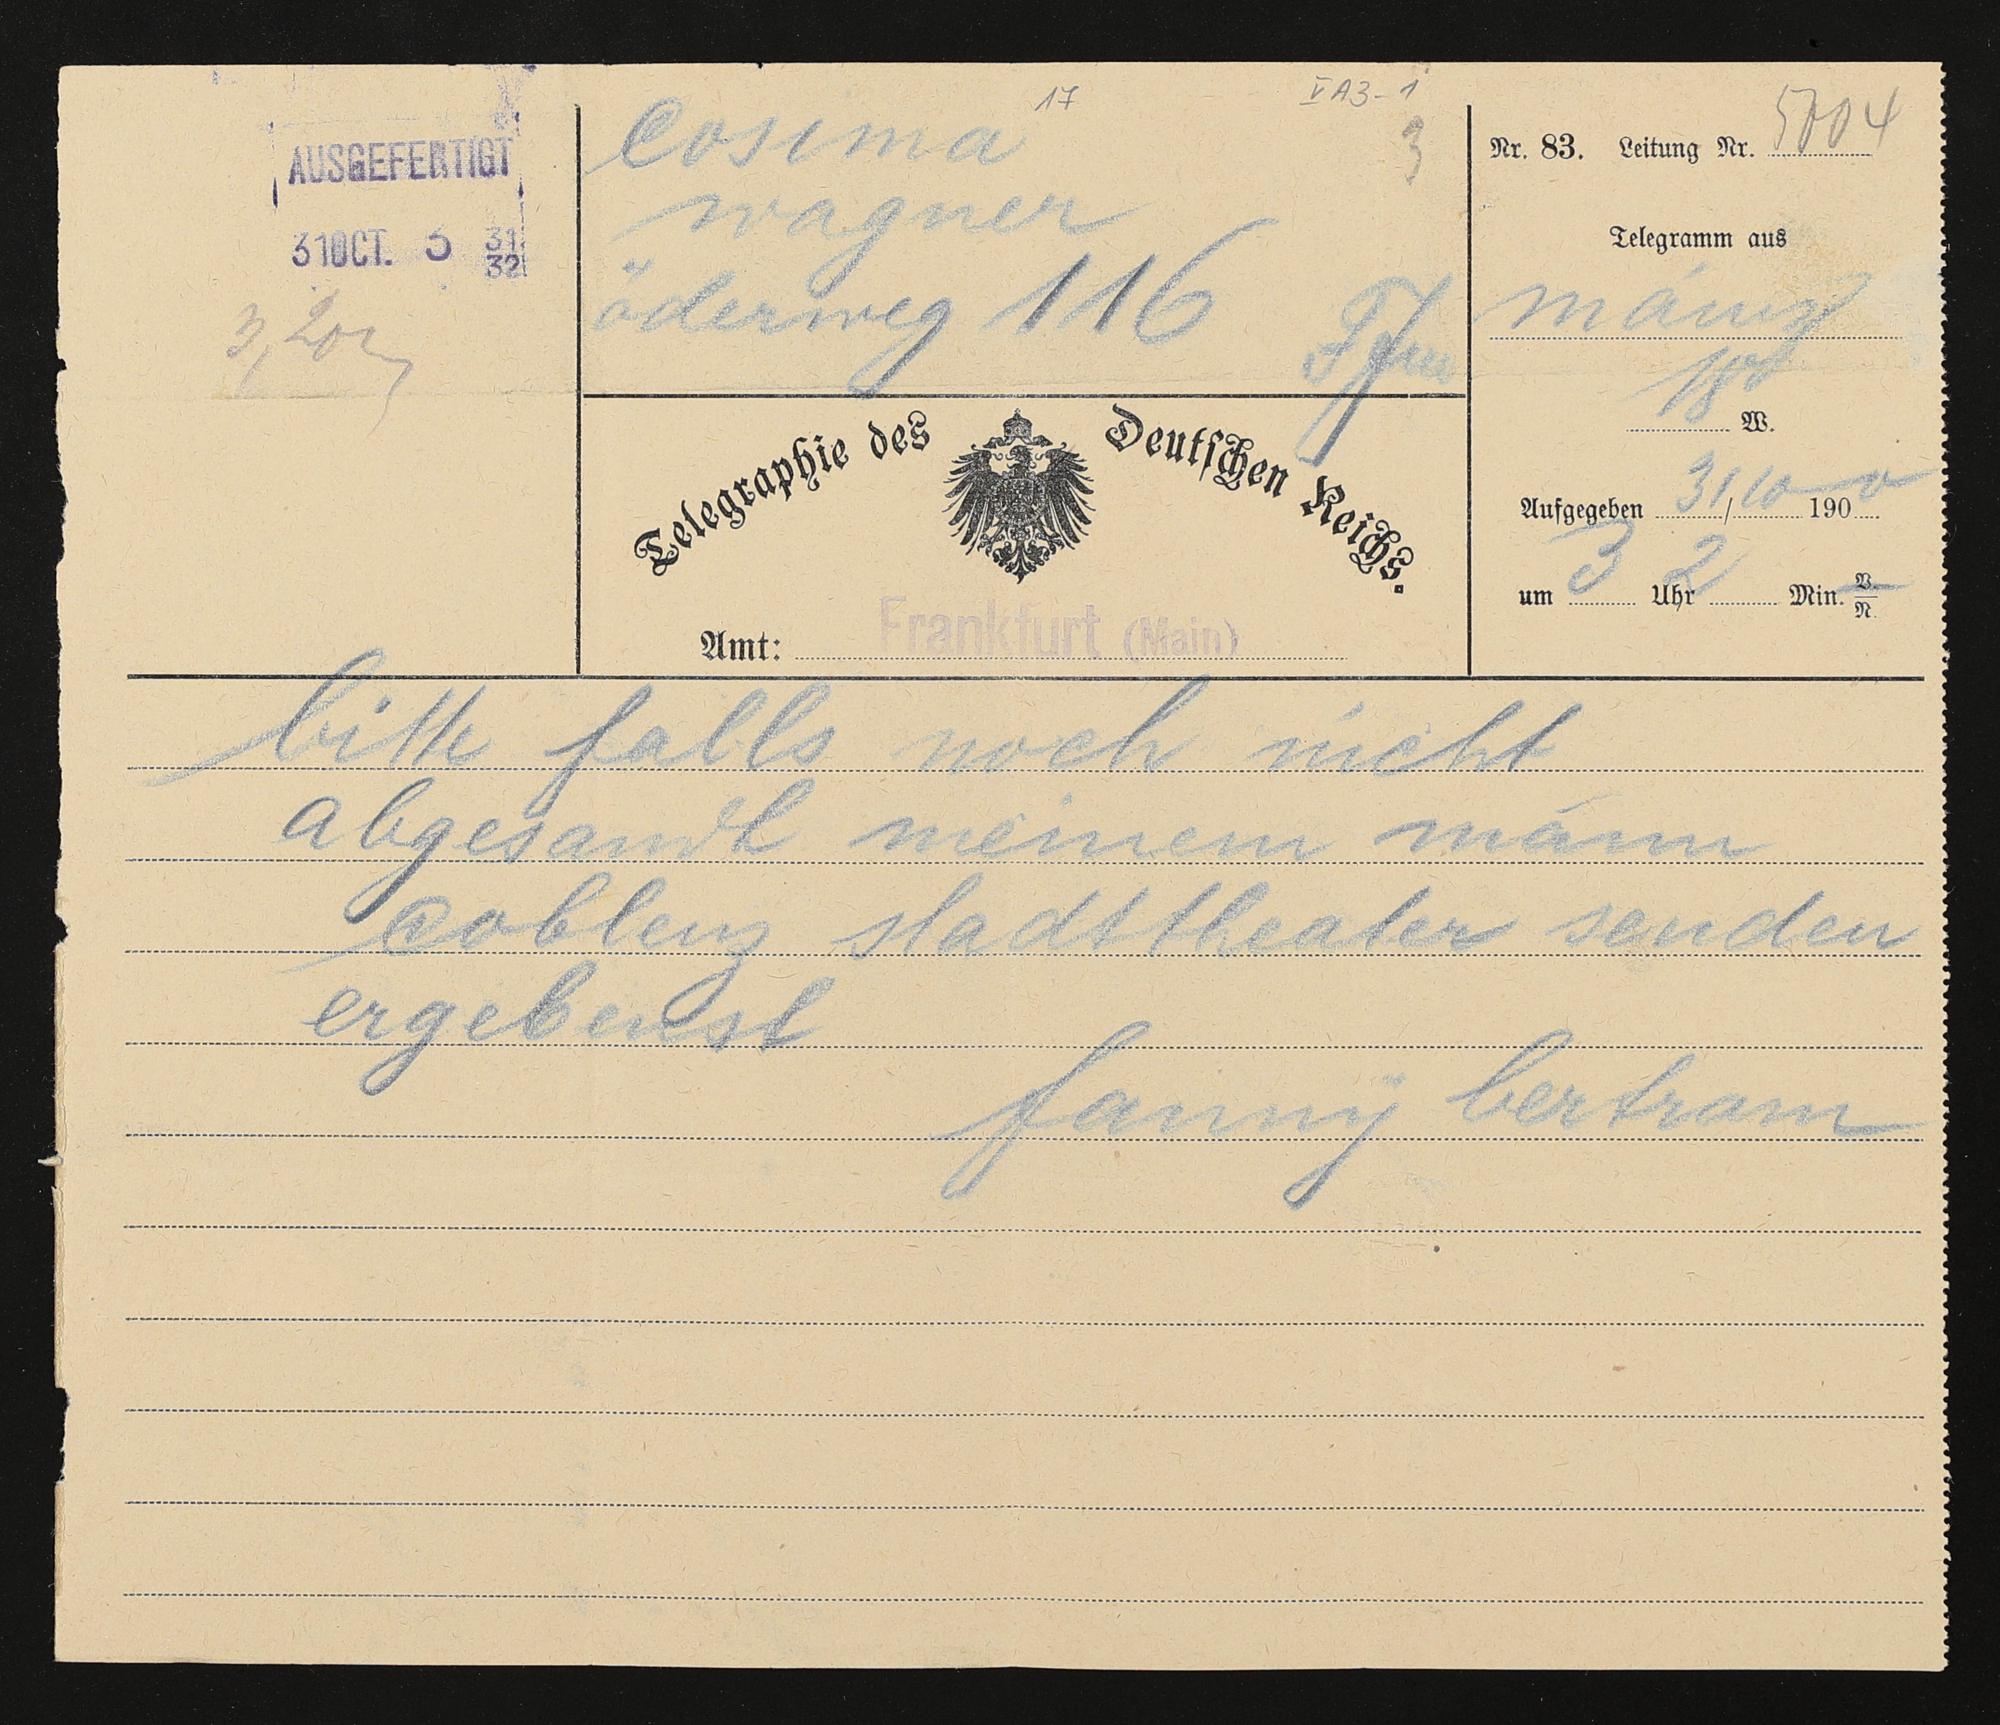 17
V A3-1
3
AUSGEFERTIGT
31OCT. 3 31 32
cosima
wagner
öderweg 116
Nr. 83. Leitung Nr. 5004
Telegramm aus
mainz
W.
Aufgegeben 31/10 190
um 3 Uhr 2 Min. V. N.
Telegraphie des Deutschen Reichs.
Amt: Frankfurt (Main)
bitte falls noch nicht
abgesandt meinem mann
coblenz stadttheater senden
ergebenst
fanny bertram